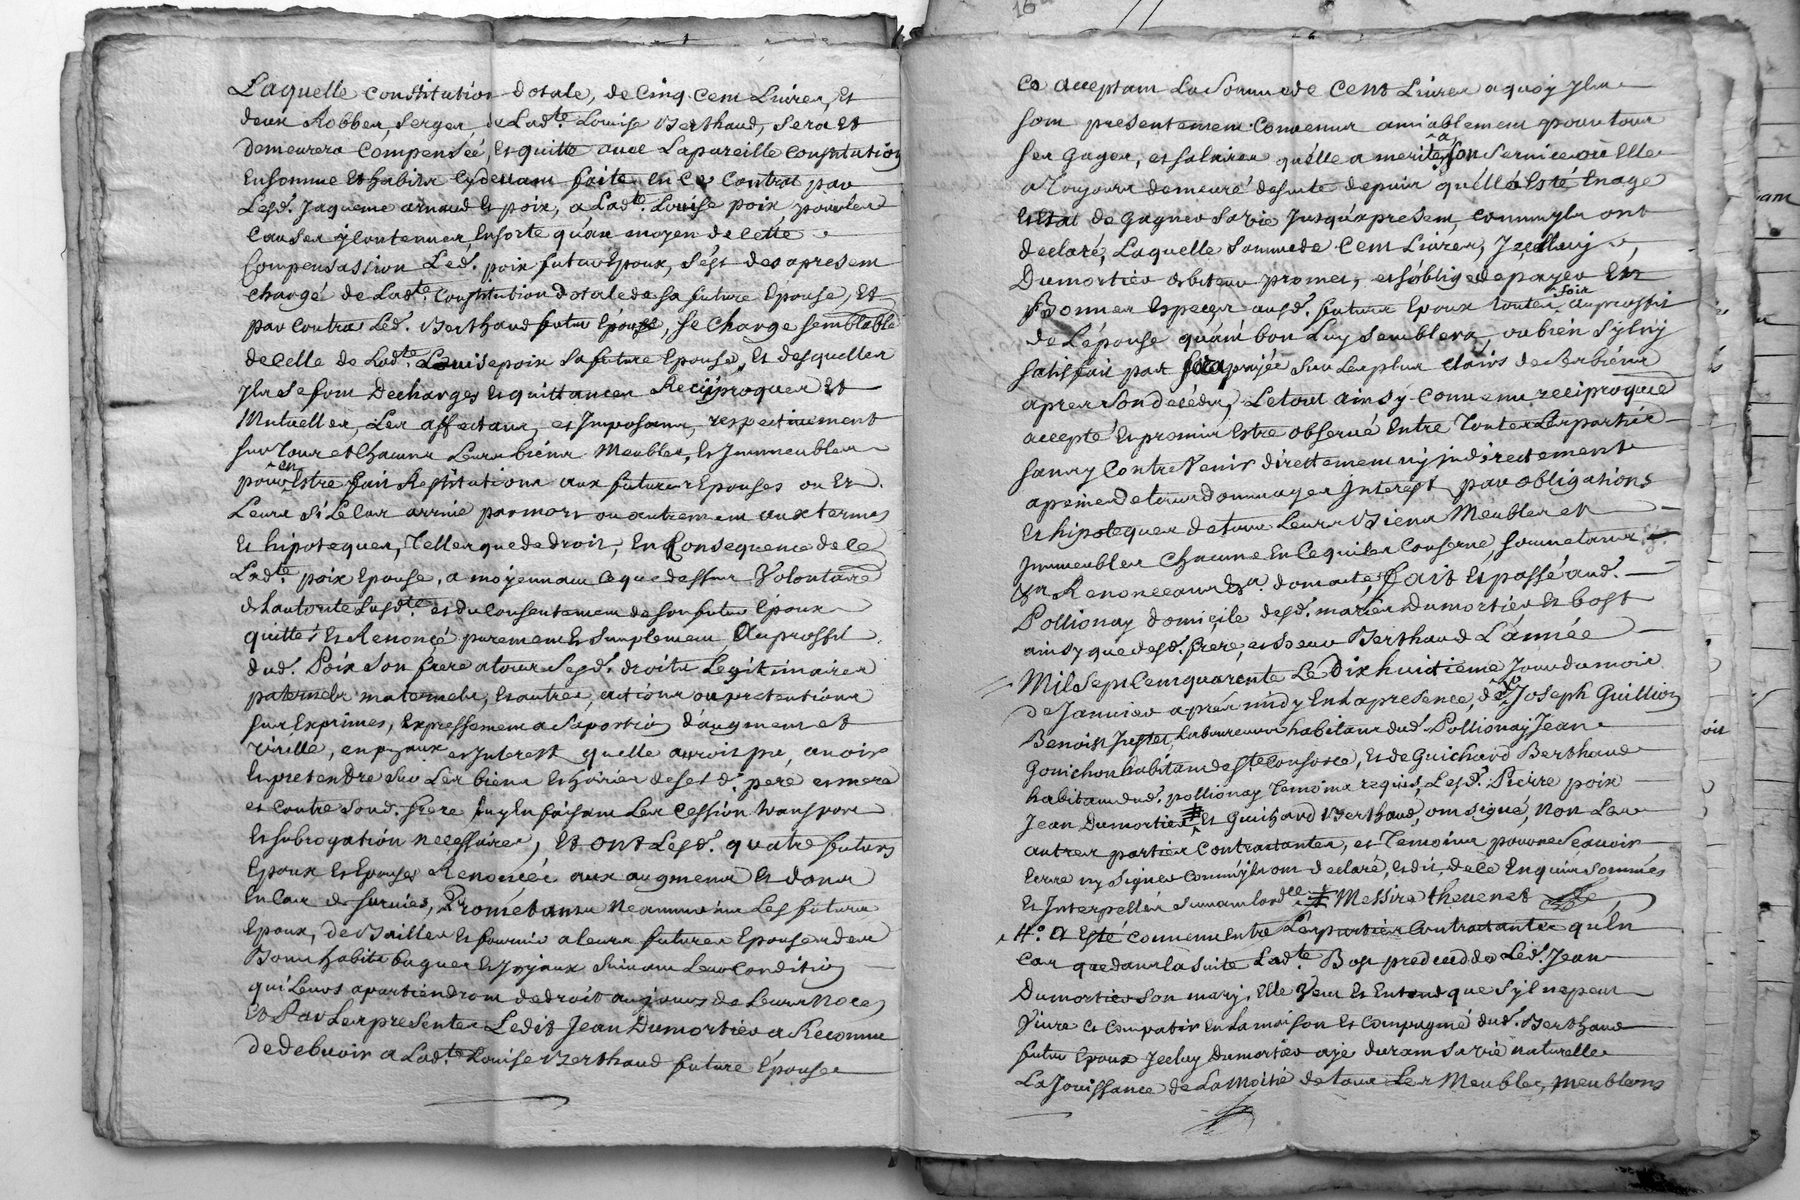 16
Laquelle constitution dotale, de Cinq Cent Livres, Et
deux Robbes, Serges, de Ladte. Louise Berthaud, Sera Et
demeurera Compensée, Et quitte avec Lapareille Constitution
Ensomme Et habits Cydevant faite En Ce Contrat par
Lesd. Jaqueme arnaud Et poix, a Ladte. Louise poix pour les
Causes y Contenues, Ensorte qu'au moyen de Cette
Compensassion Led. poix futur Epoux, S'est des apresent
Chargé de Ladte. Constitution dotale de Sa future Epouse, Et
par Contre Led. Berthaud futur Epoux, Se Charge Semblable
de Celle de Ladte. Louise poix Sa future Epouse, Et desquelles
Ils Se font Decharges Et quittances Reciproques Et
Mutuelles, Les affectans, et Imposans, respectivement
Sur Tous et Chacuns Leurs biens Meubles, Et Immeubles
pour en Estre fait Restitutions aux futures Epouses ou Es.
Leurs Si Le Cas arrive par mort ou autrement aux termes
Et hipoteques, Telles que de droit, En Consequence de Ce
Ladte. poix Epouse, a moyennant Ce que dessus Volontaire
de Lautorité Susdte. et du Consentement de Son futur Epoux
quitté Et Renoncé purement Et Simplement, Auproffit
dud. Poix Son frere a tous Sesd. droits Legitimaires
paternels maternels, Et autres, actions ou pretentions
Sus Exprimés, Expressement a Sa portion d'augment et
Virille, en pryaux et Interest quelle auroit pu, avoir
Et pretendre Sur Les biens Et hoiries de Sesd. pere et mere
et Contre Sond. frere Luy En faisant Les Cession transport
Et Subrogation necessaires, Et Ont Lesd. quatre futurs
Epoux Et Epouses Renoncé aux augmens Et dons
En Cas de Survies, Promettans Neanmoins Les futurs
Epoux, de Bailler Et fournir a Leurs futures Epouses des
Bons habits bagues Et Joyaux Suivant Leur Condition
qui Leurs apartiendront de droit aujours de Leurs Noces,
Et Par Les presentes Ledit Jean Dumortier a Reconnu
de debvoir a Ladte. Louise Berthaud future Epouse
Ce acceptant La Somme de Cent Livres a quoy Ils
Sont presentement Convenus amiablement pour tous
Ses Gages, et Salaires quelle a merité a Son Service où Elle
a Toujours demeuré de Suite depuis qu'elle a Esté En age
Et Etat de Gagner Sa Vie Jusqu'apresent, Comm'ils ont
declaré, Laquelle Somme de Cent Livres, Jcelluy
Dumortier debiteur promet, et S'oblige de payer En
Bonnes Especes ausd. futurs Epoux toutes fois Auproffit
de L'épouse quant bon Luy Semblera, ou bien S'il n'y
Satisfait pas Sera payée Sur Les plus Clairs de Ses biens
apres Son décédes, Le tout ainsy Convenu reciproque
accepté Et promis Estre observé Entre Toutes Les parties
Sans y Contrevenir directement ny indirectement
a peine de tous dommages Interest par obligations
Et hipoteques de tous Leurs Biens Meubles et
Immeubles Chacune En Ce qui Les Concerne, Soumetans
Renonceans Dom acte, Fait Et passé aud.
Pollionay domicile desd. mariés Dumortier Et bost
ainsy que desd. frere, et Soeur Berthaud L'année
Mil Sept Cent quarente Le Dix huitieme Jour du mois
de Janvier apres midy En La presence, de Sr. Joseph Guillion
Benoist Juttet, Laboureurs habitans dud. Pollionay Jean
Gonichon habitant de Ste. Consorce, Et de Guichard Berthaud
habitant dud. pollionay Temoins requis, Lesd. Pierre poix
Jean Dumortier Et Guichard Berthaud, ont Signé, Non Les
autres parties Contractantes, et Temoins pour ne Scavoir
Ecrire ny Signer Comm'ils ont declaré, Et dit, de Ce Enquis Sommés
Et Interpellés Suivant Lordce. Messire thevenet
4.° A Esté Convenu Entre Les parties Contractantes qu'En
Cas que dans La Suite Ladte. Bost predecedde Led. Jean
Dumortier Son mary, Elle Veut Et Entend que S'il ne peut
Vivre et Compatir En La maison Et Compagnie dud. Berthaud
futur Epoux Jcelluy Dumortier aye durant Sa vie naturelle
La Jouissance de La Moitié de tous Les Meubles, meublans